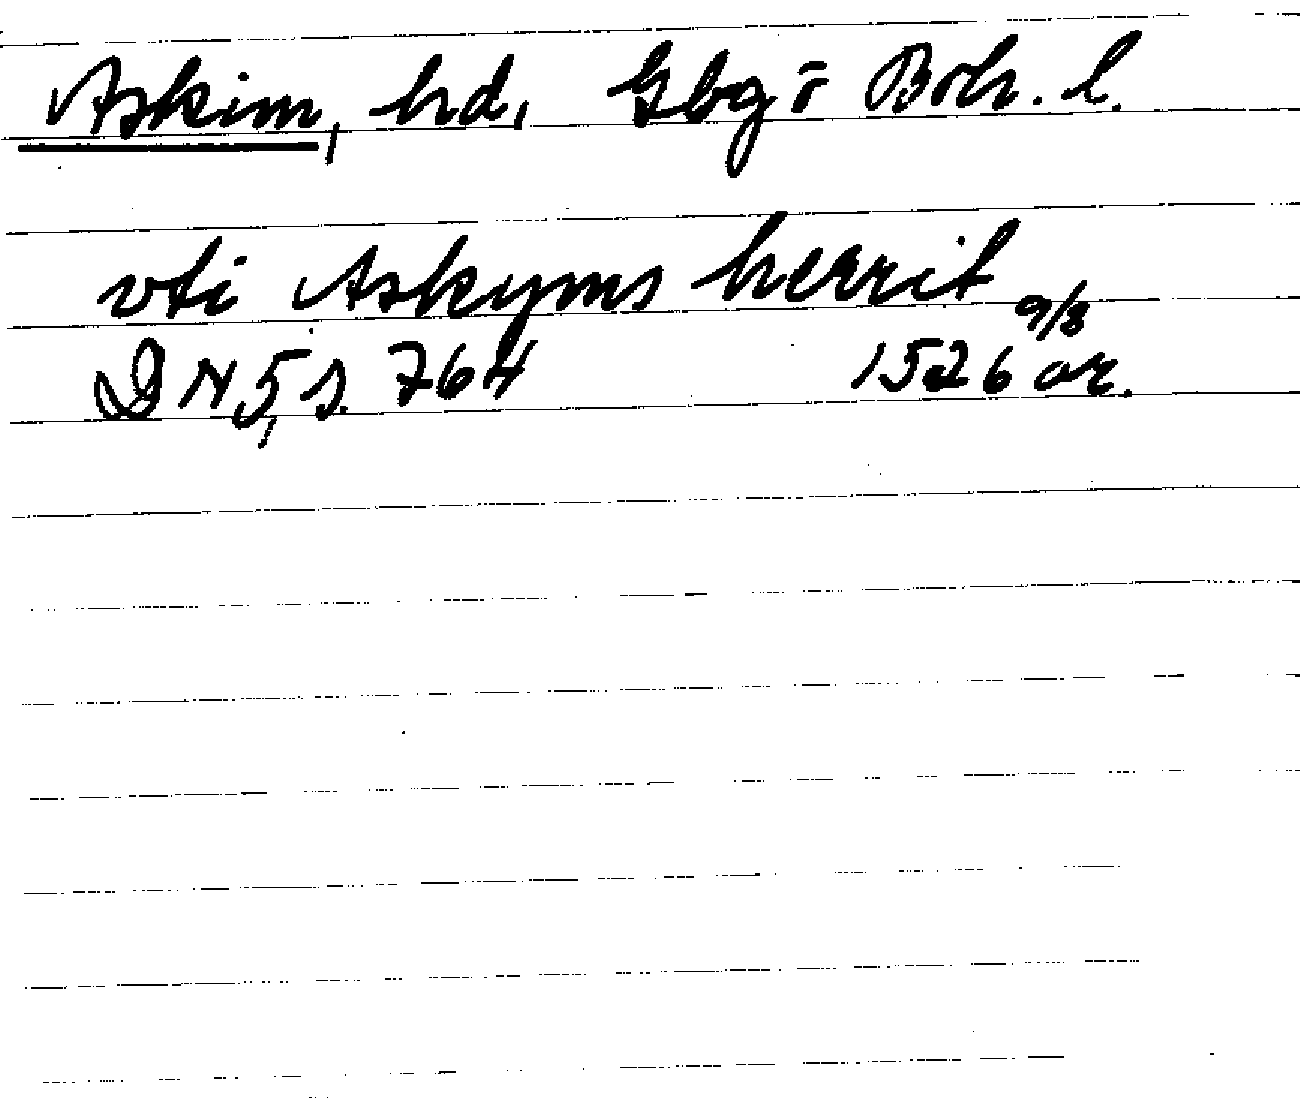 Askim, hd, Gbg o Boh. l.
vti Askyms herrit
DN 5, s. 764 1526 9/8 or.